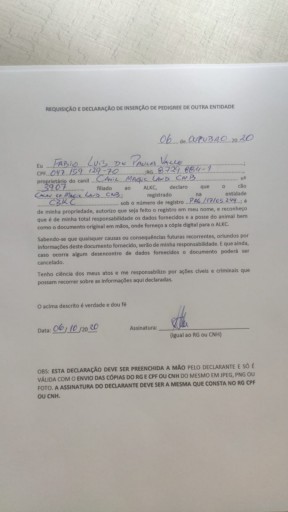 REQUISIÇÃO E DECLARAÇÃO DE INSERÇÃO DE PEDIGREE DE OUTRA ENTIDADE
06 de OUTUBRO de 20
Eu FABIO LUIS DE PAULA VALLE
CPF 097 159 127-70 RG
proprietário do canil CANIL MAGIC LAND CNB nº
3707 filiado ao ALKC, declaro que o cão
MAGIC LAND CNB registrado na entidade
CBKC sob o número de registro , é
de minha propriedade, autorizo que seja feito o registro em meu nome, e reconheço
que é de minha total responsabilidade os dados fornecidos e a posse do animal bem
como o documento original em mãos, onde forneço a cópia digital para o ALKC.
Sabendo-se que quaisquer causas ou consequências futuras recorrentes, oriundos por
informações deste documento fornecido, serão de minha responsabilidade. E que ainda,
caso ocorra algum desencontro de dados fornecidos o documento poderá ser
cancelado.
Tenho ciência dos meus atos e me responsabilizo por ações cíveis e criminais que
possam recorrer sobre as informações aqui declaradas.
O acima descrito é verdade e dou fé
Data: 06/10/2020 Assinatura:
(Igual ao RG ou CNH)
OBS: ESTA DECLARAÇÃO DEVE SER PREENCHIDA A MÃO PELO DECLARANTE E SÓ É
VÁLIDA COM O ENVIO DAS CÓPIAS DO RG E CPF OU CNH DO MESMO EM JPEG, PNG OU
FOTO. A ASSINATURA DO DECLARANTE DEVE SER A MESMA QUE CONSTA NO RG CPF
OU CNH.